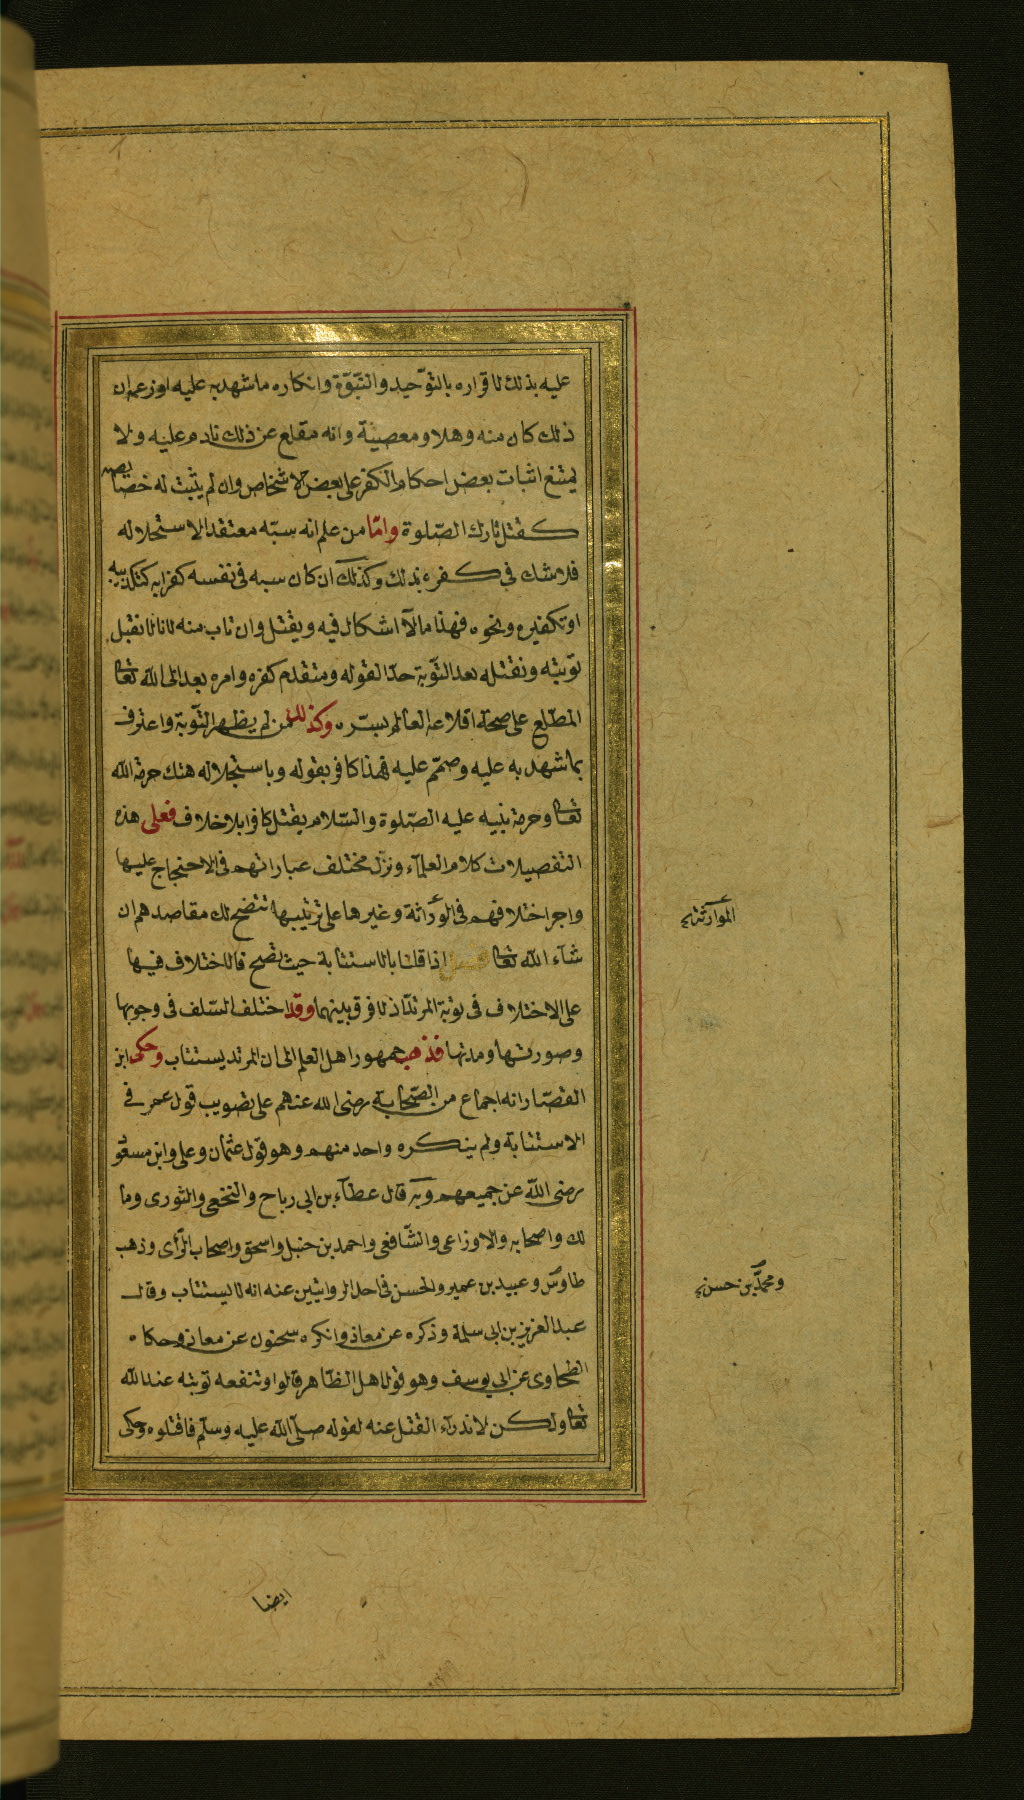 عليه بذلك لاقراره بالتوّحيد والنّبوّة وانكاره ماشهد به عليه اوزعم ان
ذلك كان منه وهلا ومعصيّة وانه مقلع عن ذلك نادم عليه ولا
يمتنع اثبات بعض احكام الكفر على بعض الاشخاص وان لم يثبت له خصايصه
كقتل تارك الصّلوة وامّا من علم انه سبّه معتقدا لاستحلاله
فلاشك فى كفره بذلك وكذلك ان كان سبه فى نفسه كفرا به كتكذيبه
اوتكفيره ونحوه فهذا مالآ اشكال فيه ويقتل وان تاب منه لانا لانقبل
توبته ونقتله بعد التّوبة حدّا لقوله ومتقدم كفره وامره بعد الى الله تعالى
المطّلع على صحة اقلاعه العالم بسرّه وكذلك من لم يظهر التّوبة واعترف
بما شهد به عليه وصمّم عليه فهذا كافر بقوله وباستحلاله هتك حرمة الله
تعالى وحرمة نبيه عليه الصّلوة والسّلام يقتل كافرا بلا خلاف فعلى هذه
التفصيلات كلام العلمآء ونزّل مختلف عباراتهم فى الاحتجاج عليها
واجر اختلافهم فى الوراثة وغيرها على ترتيبها تتضح لك مقاصدهم ان
شآء الله تعالى فصل اذا قلنا بالاستتابة حيث تصح فالاختلاف فيها
على الاختلاف فى توبة المرتدّ اذ لافرق بينهما وقد اختلف السّلف فى وجوبها
وصورتها ومدتها فذهب جمهور اهل العلم الى ان المرتد يستتاب وحكى ابن
القصّار انه اجماع من الصّحابة رضى الله عنهم على تصويب قول عمر فى
الاستتابة ولم ينكره واحد منهم وهو قول عثمان وعلى وابن مسعود
رضى الله عن جميعهم وبه قال عطآء بن ابى رباح والنخعى والثورى وما
لك واصحابه والاوزاعى والشّافعى واحمد بن حنبل واسحق واصحاب الرّأى وذهب
طاوس وعبيد بن عمير والحسن فى احد الروايتين عنه انه لايستتاب وقال
عبد العزيز بن ابى سلمة وذكره عن معاذ وانكره سحنون عن معاذ وحكاه
الطحاوى عن ابى يوسف وهو قول اهل الظّاهر قالوا وتنفعه توبته عند الله
تعالى ولكن لاندرآء القتل عنه لقوله صلّى الله عليه وسلّم فاقتلوه وحكى
الموارثة
ومحمّد بن حسن
ايضا